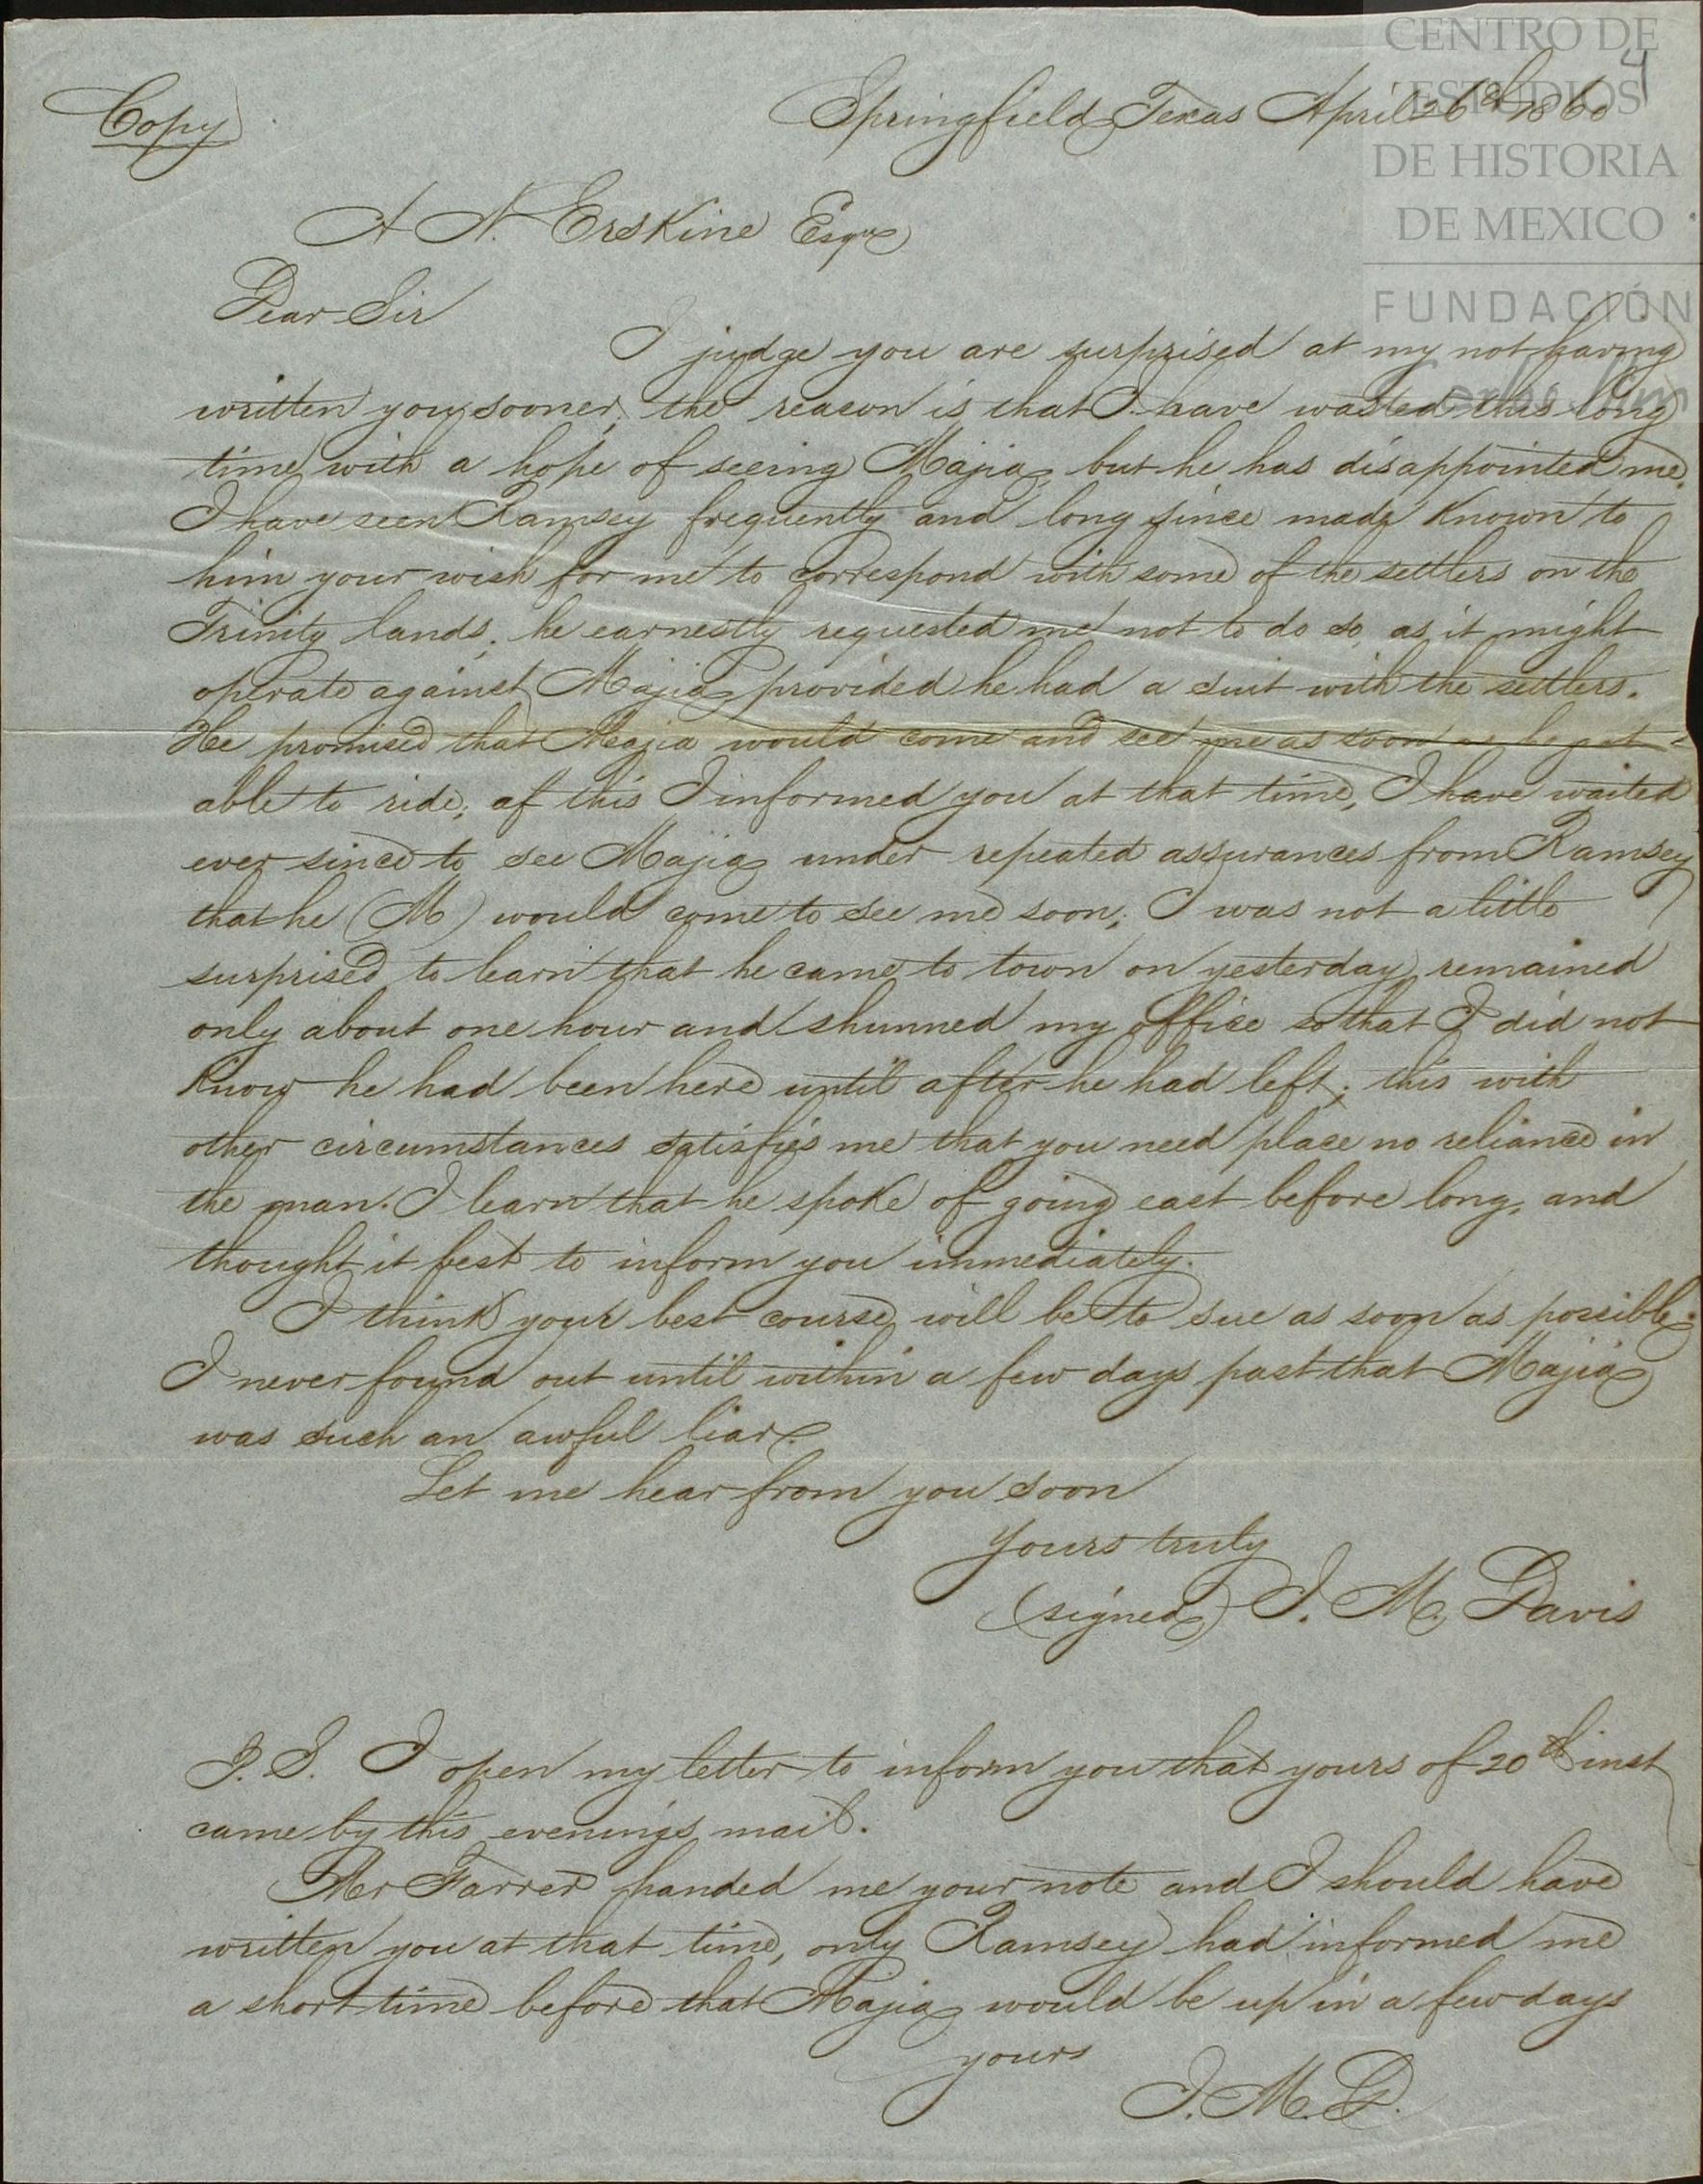 CENTRO DE
ESTUDIOS
DE HISTORIA
DE MEXICO
FUNDACIÓN
4
Copy
Springfield Texas April 26th 1860
A N. Erskine Esqr
Dear Sir
I judge you are surprised at my not having
written you sooner, the reason is that I have waited this long
time with a hope of seeing Majia, but he has disappointed me.
I have seen Ramsey frequently and long since made known to
him your wish for me to correspond with some of the settlers on the
Trinity lands; he earnestly requested me not to do so, as it might
operate against Majia provided he had a suit with the settlers.
He promised that Majia would come and see me as soon as he got
able to ride; of this I informed you at that time, I have waited
ever since to see Majia under repeated assurances from Ramsey
that he (M) would come to see me soon; I was not a little
surprised to learn that he came to town on yesterday, remained
only about one hour and shunned my office so that I did not
know he had been here until after he had left; this with
other circumstances satisfies me that you need place no reliance in
the man. I learn that he spoke of going east before long, and
thought it best to inform you immediately.
I think your best course will be to sue as soon as possible.
I never found out until within a few days past that Majia
was such an awful liar.
Let me hear from you soon
Yours truly
(signed) J. M. Davis
P. S. I open my letter to inform you that yours of 20th inst
came by this evening's mail.
Mr Farrer handed me your note and I should have
written you at that time, only Ramsey had informed me
a short time before that Majia would be up in a few days
yours
J. M. D.